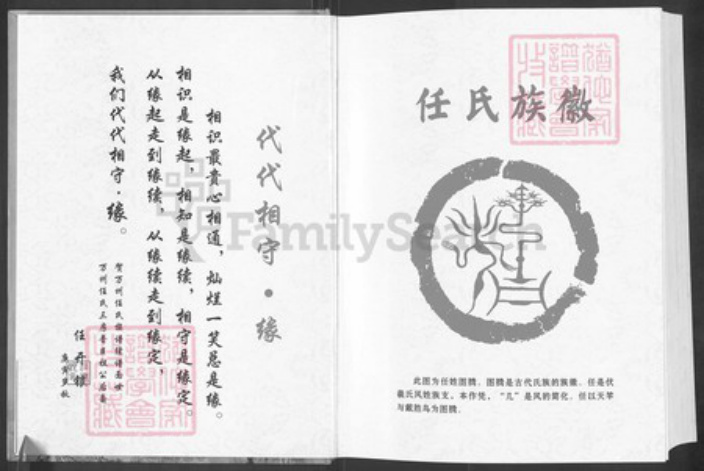 代代相守·缘
相识最贵心相通，灿烂一笑总是缘。
相识是缘起，相知是缘续，相守是缘定。
从缘起走到缘续，从缘续走到缘定，
我们代代相守·缘。
贺万州任氏族谱续谱面世
万州任氏
任
庚寅
任氏族徽
此图为任姓图腾。图腾是古代氏族的族徽。任是伏
羲氏风姓族支。本作凭，“几”是风的简化。任以天竿
与戴胜鸟为图腾。
FamilySearch